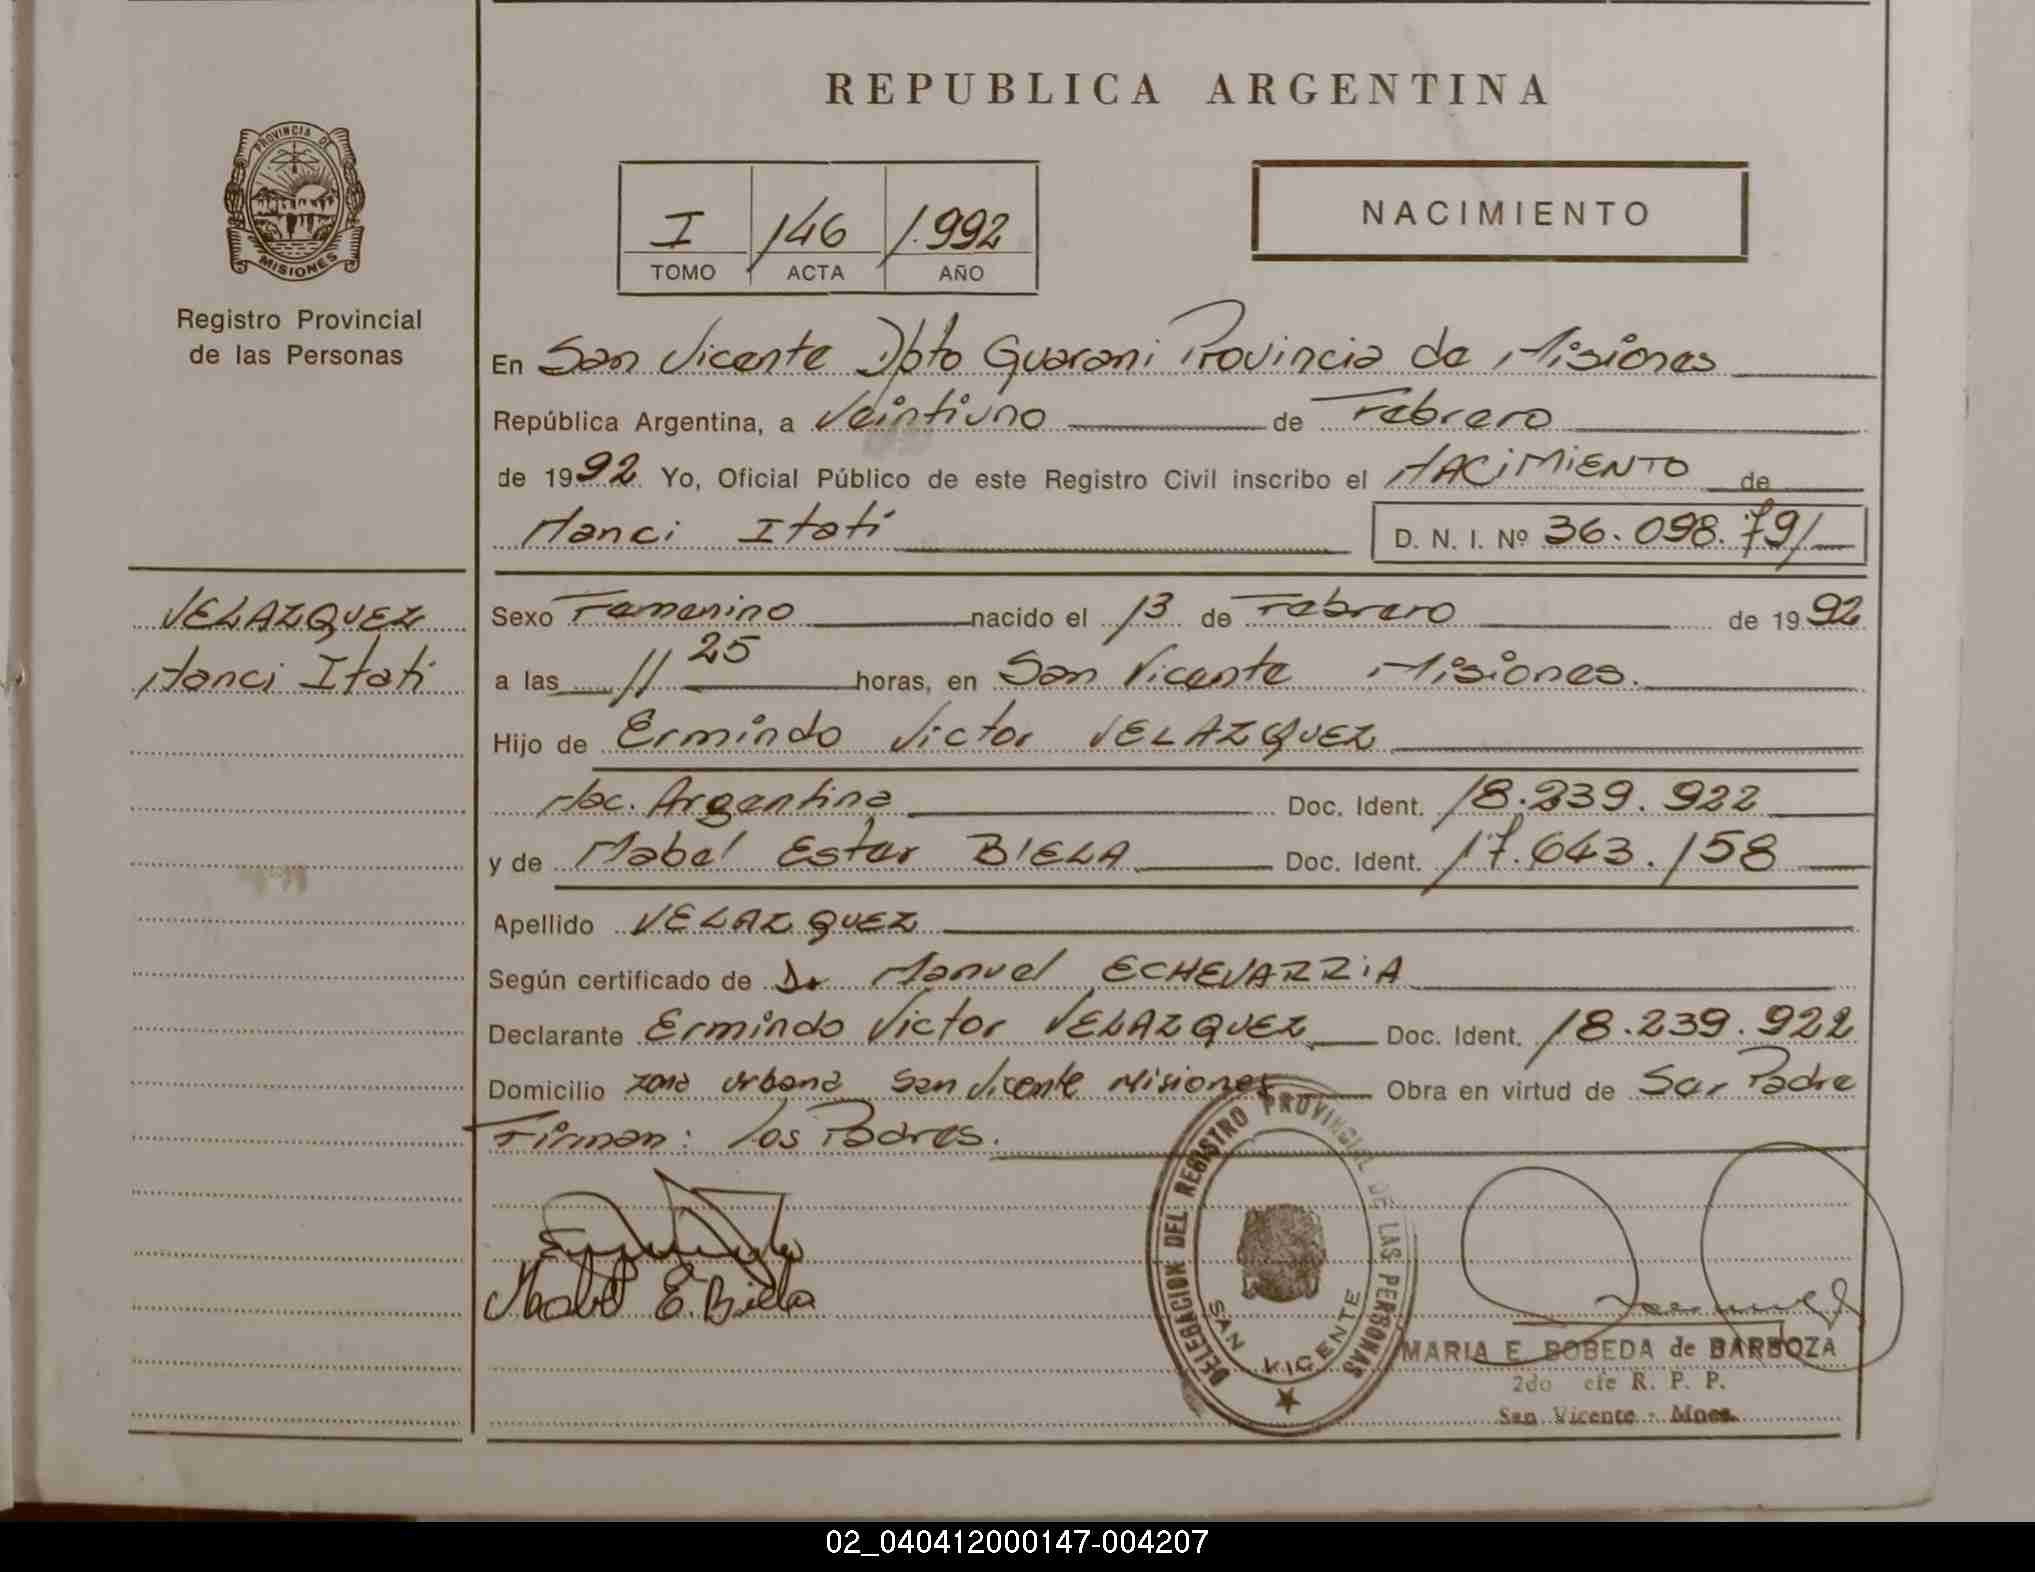 REPUBLICA ARGENTINA
PROVINCIA DE
MISIONES
Registro Provincial
de las Personas
I 146 1.992
TOMO ACTA AÑO
NACIMIENTO
En San Vicente Dpto Guarani Provincia de Misiones
República Argentina, a Veintiuno de Febrero
de 1992. Yo, Oficial Público de este Registro Civil inscribo el NACIMIENTO de
Nanci Itatí
D. N. I. Nº 36.098.791
VELAZQUEZ
Nanci Itati
Sexo Femenino nacido el 13 de Febrero de 1992
a las 11 25 horas, en San Vicente Misiones.
Hijo de Ermindo Victor VELAZQUEZ
Nac. Argentina Doc. Ident. 18.239.922
y de Mabel Ester BIELA Doc. Ident. 17.643.158
Apellido VELAZQUEZ
Según certificado de Dr Manuel ECHEVARRiA
Declarante Ermindo Victor VELAZQUEZ Doc. Ident. 18.239.922
Domicilio zona urbana San Vicente Misiones Obra en virtud de Ser Padre
Firman: los Padres.
Mabel E. Biela
DELEGACION DEL REGISTRO PROVINCIAL DE LAS PERSONAS
SAN VICENTE
MARIA E. BOBEDA de BARBOZA
2do efe R. P. P.
San Vicente - Mnes.
02_040412000147-004207